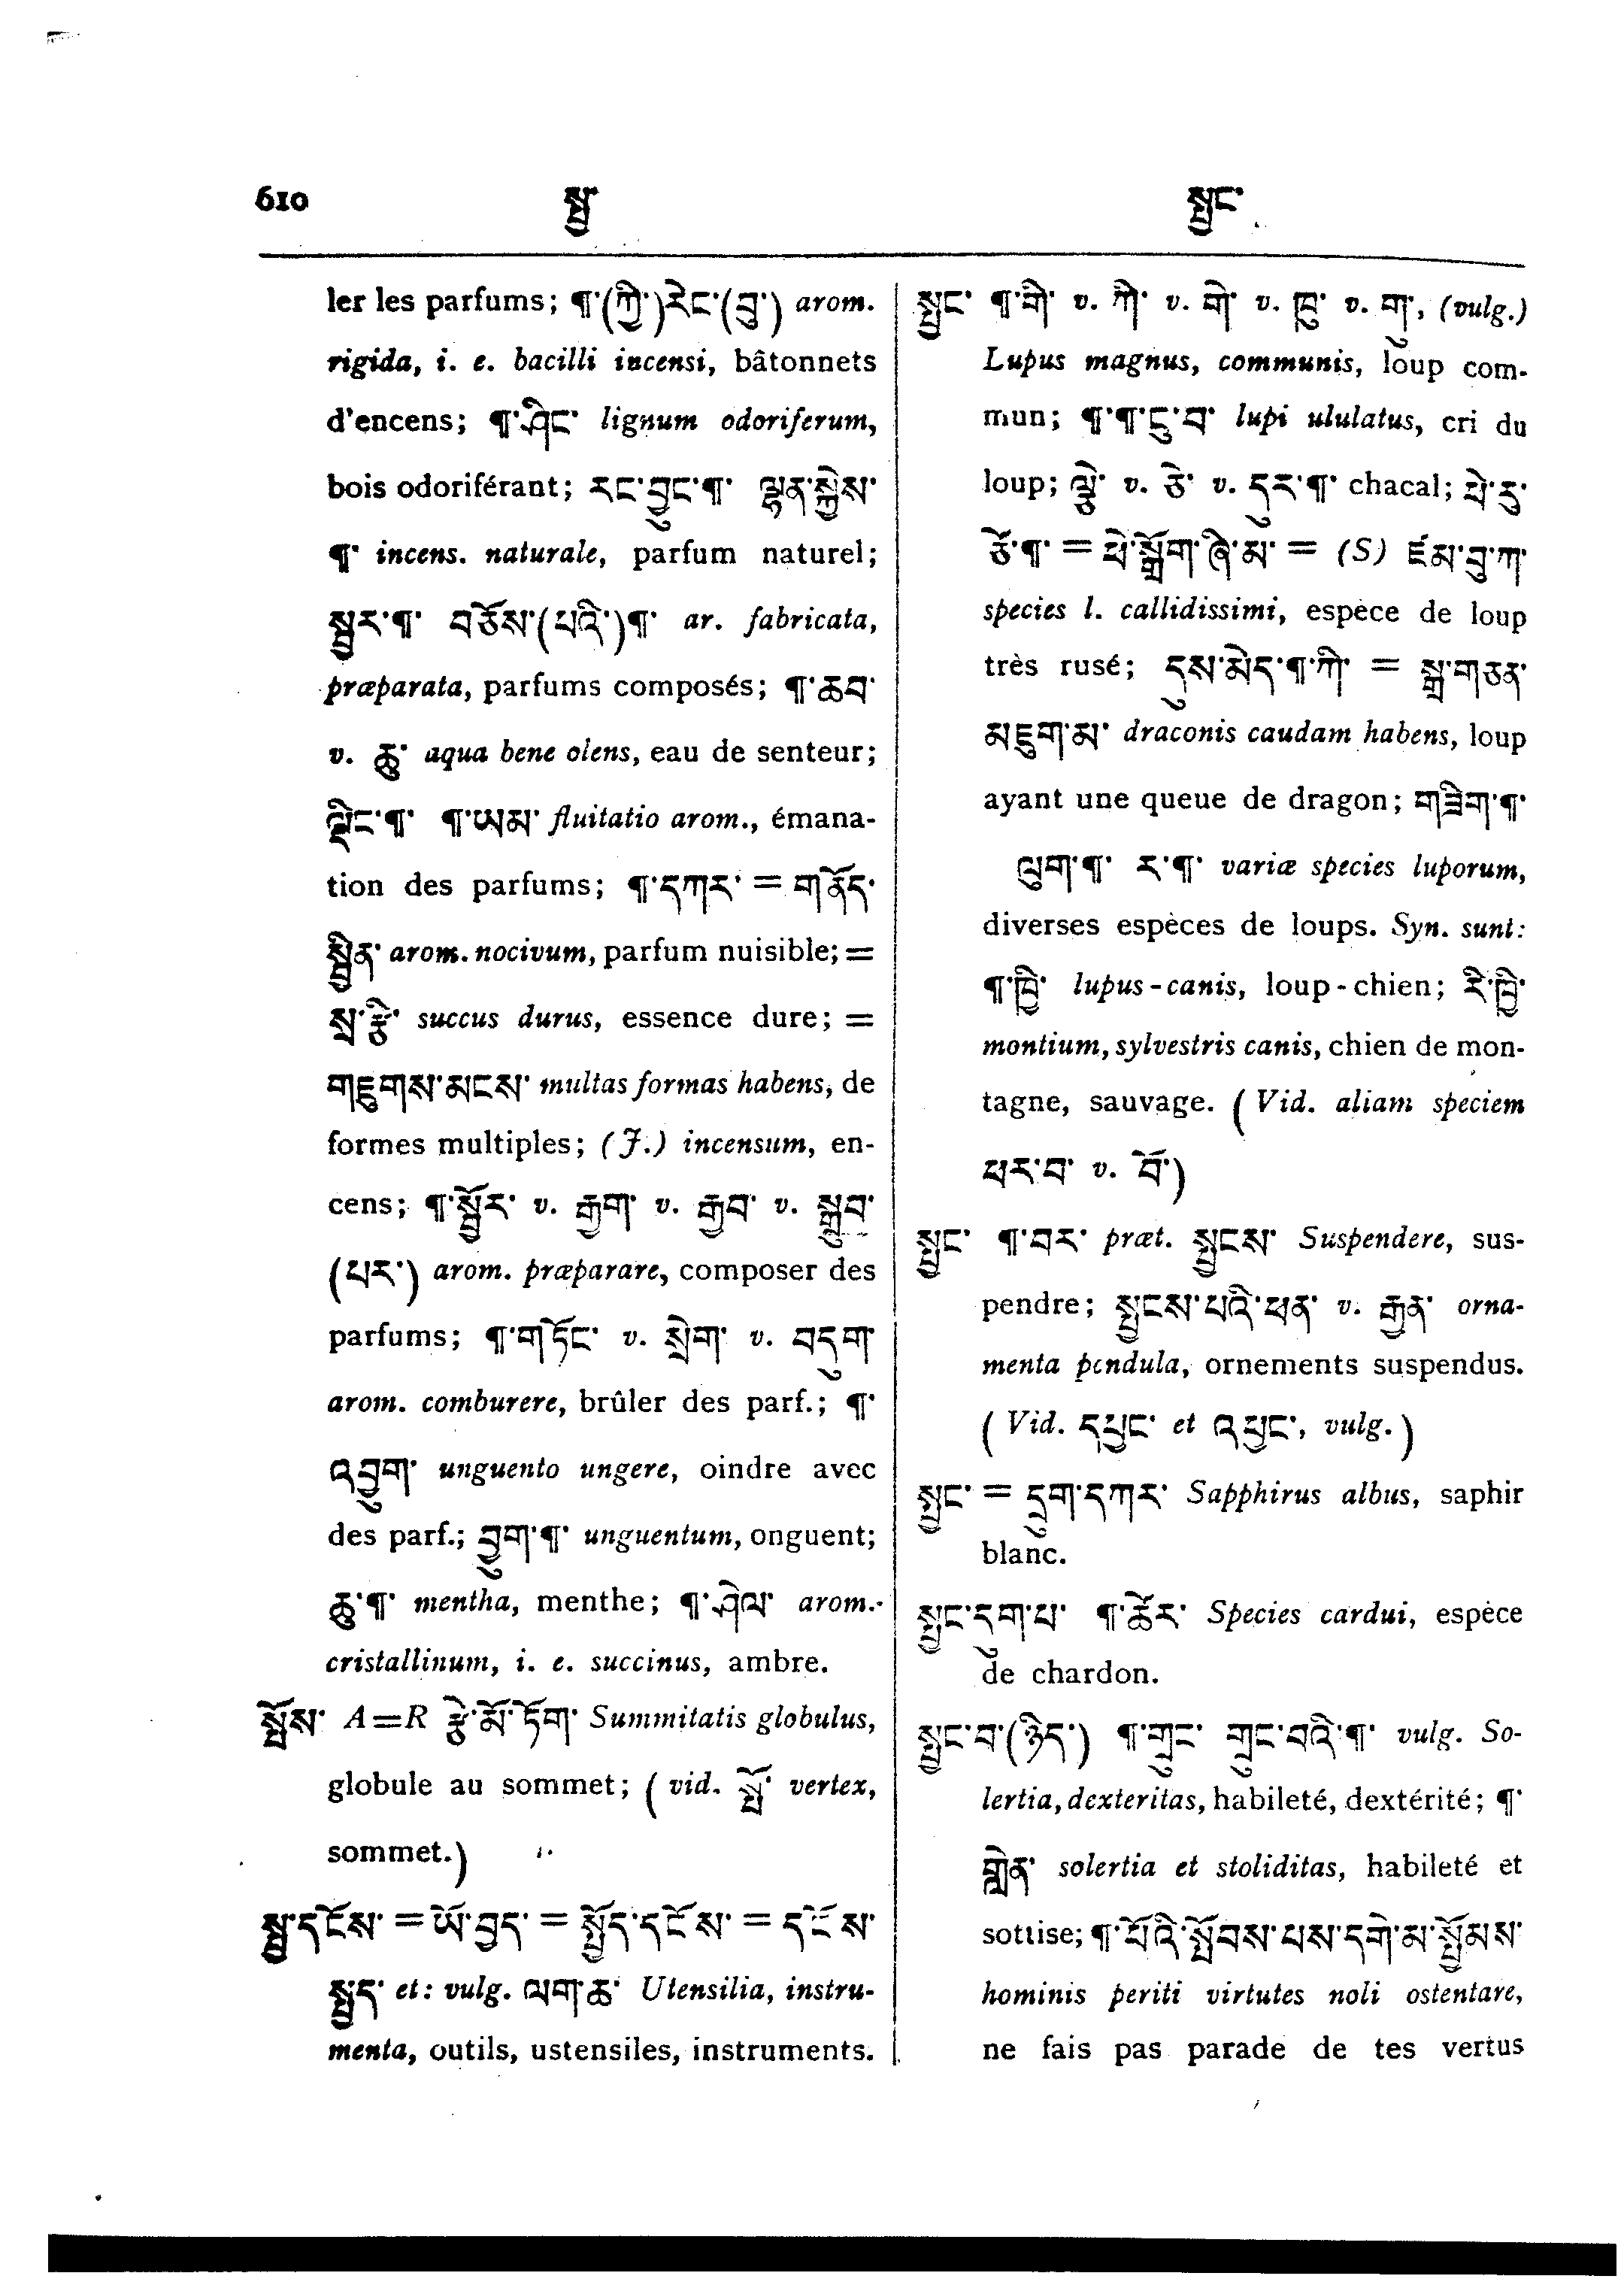 610 སྤྱ་ སྤྱང་
ler les parfums; ¶་(ཀྱི་)རེང་(བུ་) arom.
rigida, i. e. bacilli incensi, bâtonnets
d'encens; ¶་ཤིང་ lignum odoriferum,
bois odoriférant; རང་བྱུང་¶་ ལྷན་སྐྱེས་
¶་ incens. naturale, parfum naturel;
སྦྱར་¶་ བཅོས་(པའི་)¶་ ar. fabricata,
præparata, parfums composés; ¶་ཆབ་
v. ཆུ་ aqua bene olens, eau de senteur;
ལྡིང་¶་ ¶་ཡམ་ fluitatio arom., émana-
tion des parfums; ¶་དཀར་ = གནོད་
སྦྱིན་ arom. nocivum, parfum nuisible; =
སྲ་རྩི་ succus durus, essence dure; =
གཟུགས་མངས་ multas formas habens, de
formes multiples; (J.) incensum, en-
cens; ¶་སྦྱོར་ v. རྒྱག་ v. རྒྱབ་ v. སྒྲུབ་
(པར་) arom. præparare, composer des
parfums; ¶་གཏོང་ v. སྲེག་ v. བདུག་
arom. comburere, brûler des parf.; ¶་
འབྱུག་ unguento ungere, oindre avec
des parf.; བྱུག་¶་ unguentum, onguent;
ཆུ་¶་ mentha, menthe; ¶་ཤེལ་ arom.
cristallinum, i. e. succinus, ambre.
སྤོས་ A=R རྩེ་མོ་ཏོག་ Summitatis globulus,
globule au sommet; (vid. སྤོ་ vertex,
sommet.)
སྤྱ་དངོས་ = ཡོ་བྱད་ = སྤྱོད་དངོས་ = དངོས་
སྤྱད་ et: vulg. ལག་ཆ་ Utensilia, instru-
menta, outils, ustensiles, instruments.
སྤྱང་ ¶་གི་ v. ཀི་ v. གེ་ v. ཁུ་ v. གུ་, (vulg.)
Lupus magnus, communis, loup com-
mun; ¶་¶་ངུ་བ་ lupi ululatus, cri du
loup; ལྕེ་ v. ཅེ་ v. དུར་¶་ chacal; ཕེ་རུ་
ཅོ་¶་ = ཕེ་སྒྲོག་ཞི་མ་ = (S) ཛམ་བུ་ཀ་
species l. callidissimi, espèce de loup
très rusé; དུས་མེད་¶་ཀི་ = སྒྲ་གཅན་
མཇུག་མ་ draconis caudam habens, loup
ayant une queue de dragon; གཟིག་¶་
ལུག་¶་ ར་¶་ variæ species luporum,
diverses espèces de loups. Syn. sunt:
¶་ཁྱི་ lupus-canis, loup-chien; རི་ཁྱི་
montium, sylvestris canis, chien de mon-
tagne, sauvage. (Vid. aliam speciem
ཕར་བ་ v. བོ་)
སྤྱང་ ¶་བར་ præt. སྤྱངས་ Suspendere, sus-
pendre; སྤྱངས་པའི་ཕན་ v. རྒྱན་ orna-
menta pendula, ornements suspendus.
(Vid. དཔྱང་ et འཕྱང་, vulg.)
སྤྱང་ = དྲུག་དཀར་ Sapphirus albus, saphir
blanc.
སྤྱང་དུག་པ་ ¶་ཚེར་ Species cardui, espèce
de chardon.
སྤྱང་བ་(ཉིད་) ¶་གྲུང་ གྲུང་བའི་¶་ vulg. So-
lertia, dexteritas, habileté, dextérité; ¶་
གླེན་ solertia et stoliditas, habileté et
sottise; ¶་པོའི་སྤོབས་པས་དགེ་མ་སྤྱོམས་
hominis periti virtutes noli ostentare,
ne fais pas parade de tes vertus